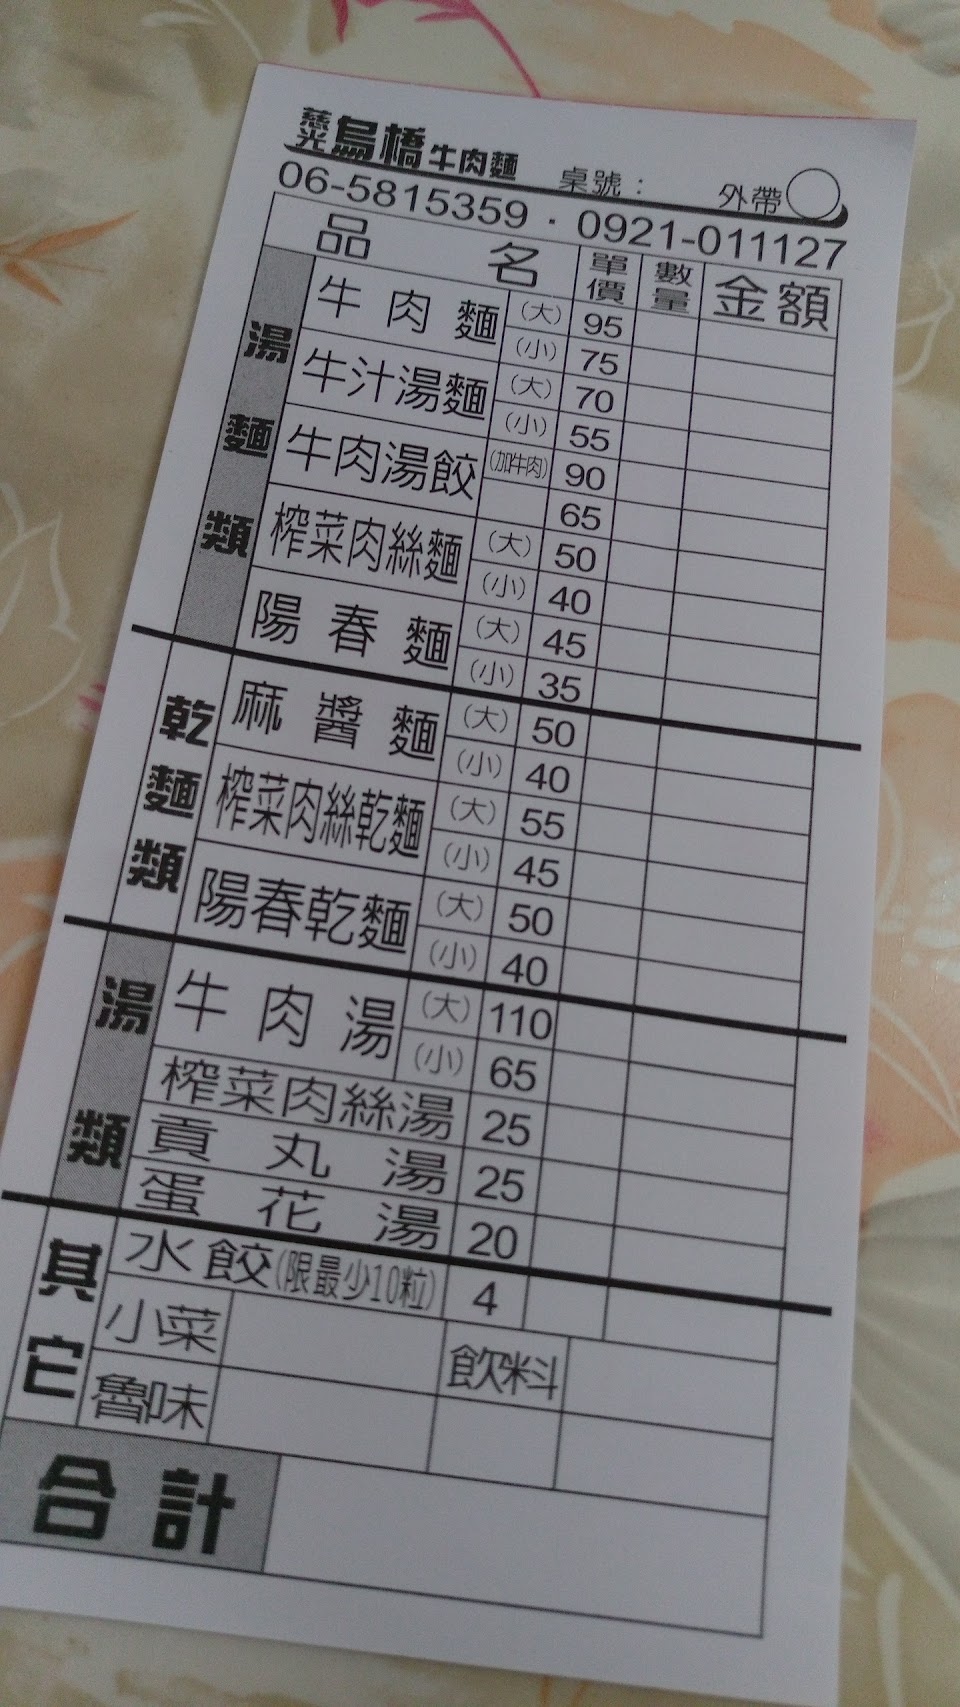 慈光烏橋牛肉麵 桌號： 外帶
06-5815359．0921-011127
品名 單價 數量 金額
湯麵類
牛肉麵 (大) 95
(小) 75
牛汁湯麵 (大) 70
(小) 55
牛肉湯餃 (加牛肉) 90
65
榨菜肉絲麵 (大) 50
(小) 40
陽春麵 (大) 45
(小) 35
乾麵類
麻醬麵 (大) 50
(小) 40
榨菜肉絲乾麵 (大) 55
(小) 45
陽春乾麵 (大) 50
(小) 40
湯類
牛肉湯 (大) 110
(小) 65
榨菜肉絲湯 25
貢丸湯 25
蛋花湯 20
其它
水餃(限最少10粒) 4
小菜 飲料
魯味
合計